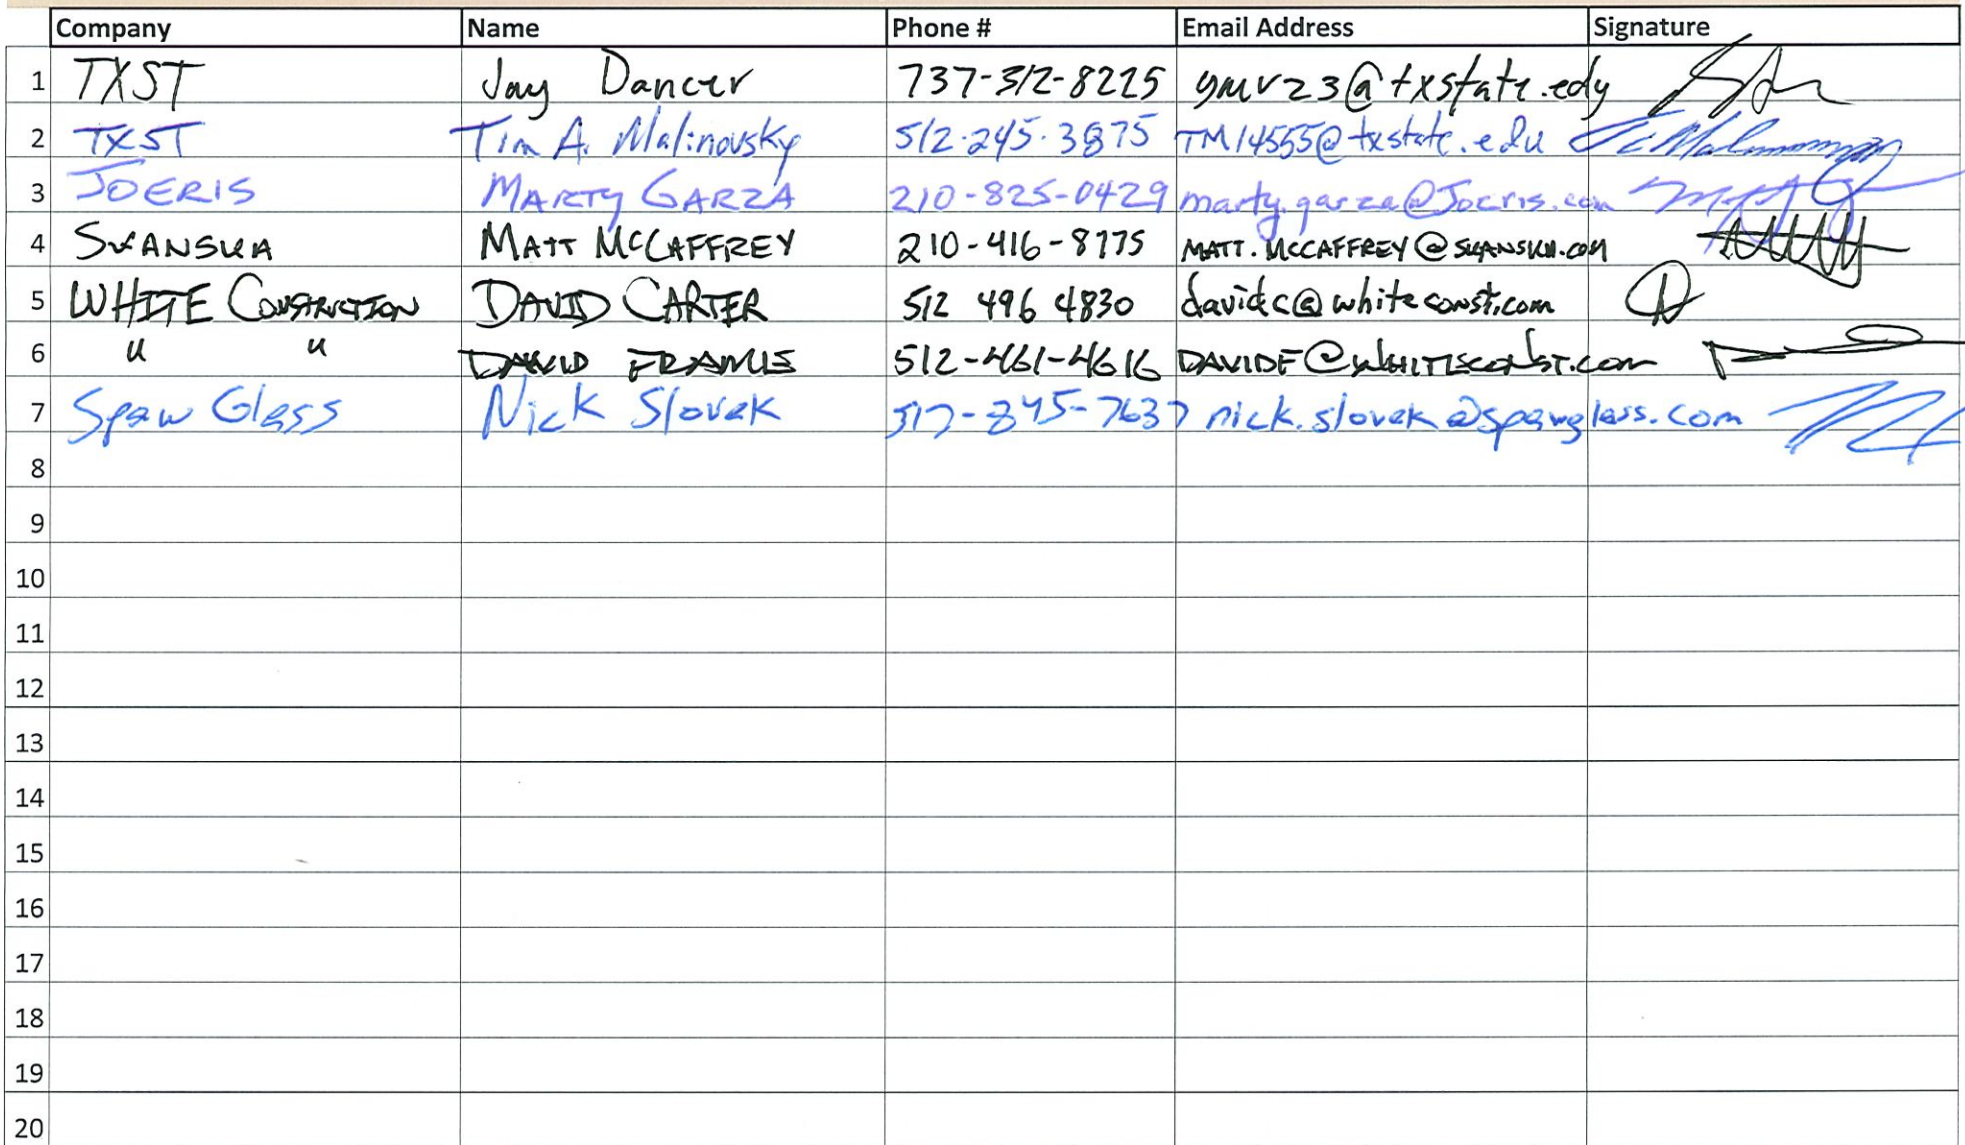 Company Name Phone # Email Address Signature
1 TXST Jay Dancer 737-312-8225 gmv23@txstate.edu
2 TXST Tim A. Malinovsky 512-245-3875 TM14555@txstate.edu
3 JOERIS MARTY GARZA 210-825-0429 marty.garza@Joeris.com
4 SKANSKA MATT MCCAFFREY 210-416-8775 MATT.MCCAFFREY@SKANSKA.COM
5 WHITE CONSTRUCTION DAVID CARTER 512 496 4830 davidc@whiteconst.com
6 " " DAVID 512-461-4616 DAVIDF@WHITECONST.com
7 Spaw Glass Nick Slovak 517-845-7637 nick.slovak@spawglass.com
8
9
10
11
12
13
14
15
16
17
18
19
20